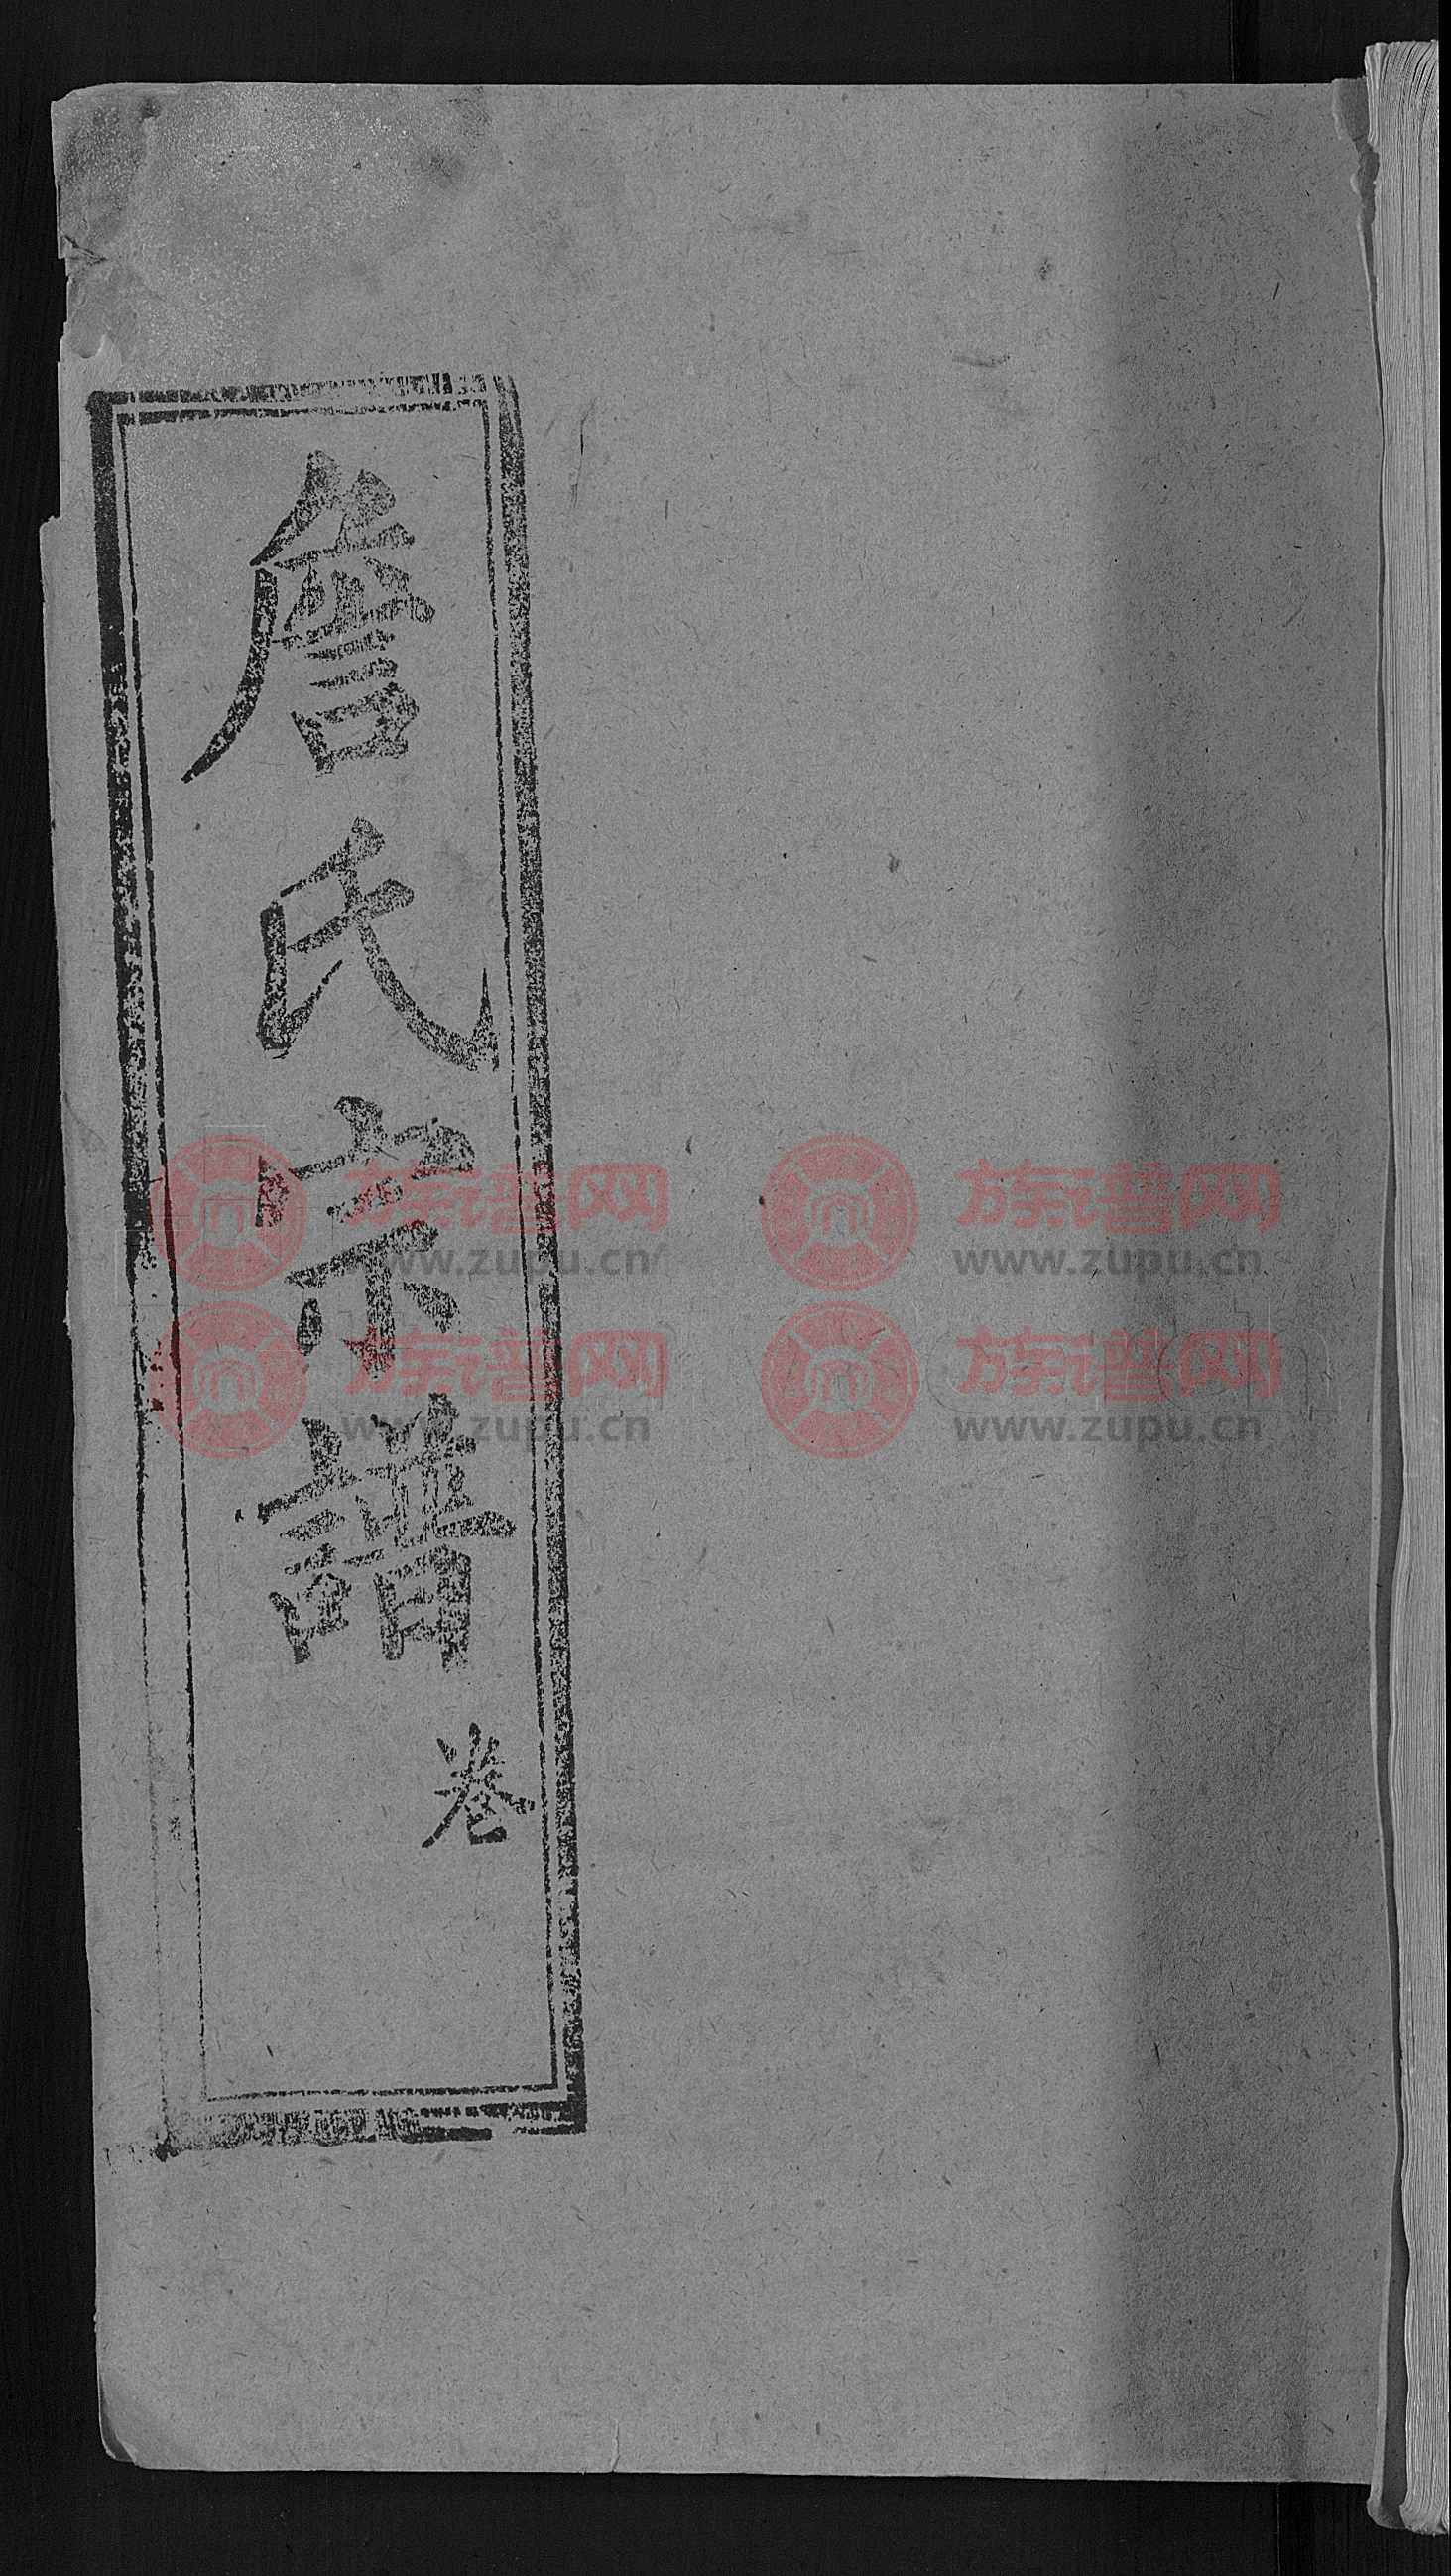 詹氏宗譜
卷
族谱网 族谱网
www.zupu.cn www.zupu.cn
族谱网 族谱网
www.zupu.cn www.zupu.cn